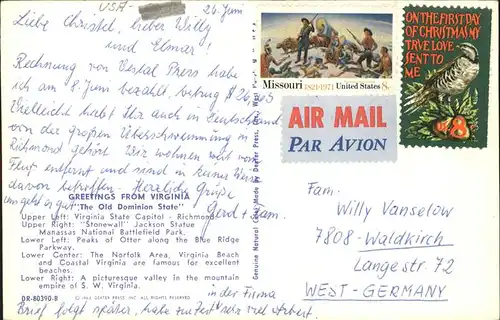 USA-
26. Juni
Liebe Christel, lieber Willy
und Elmar!
Rechnung von Vestal Press habe
ich am 8. Juni bezahlt, betrug $ 26,
Vielleicht habt Ihr auch in Deutschland
von der großen Überschwemmung in
Richmond gehört. Wir wohnen weit vom
Fluß entfernt und sind in keiner Weise
davon betroffen. Herzliche Grüße
Gerd + Fam.
GREETINGS FROM VIRGINIA
"The Old Dominion State"
Upper Left: Virginia State Capitol - Richmond
Upper Right: "Stonewall" Jackson Statue
Manassas National Battlefield Park.
Lower Left: Peaks of Otter along the Blue Ridge
Parkway.
Lower Center: The Norfolk Area, Virginia Beach
and Coastal Virginia are famous for excellent
beaches.
Lower Right: A picturesque valley in the mountain
empire of S. W. Virginia.
DR-80390-B
DEXTER PRESS, INC. ALL RIGHTS RESERVED
in der Firma
Brief folgt später, habe zur Zeit sehr viel Arbeit.
Genuine Natural Color Made by Dexter Press, Inc., West
Missouri 1821-1971 United States 8c
ON THE FIRST DAY
OF CHRISTMAS MY
TRVE LOVE
SENT TO
ME
US 8c
AIR MAIL
PAR AVION
Fam.
Willy Vanselow
7808-Waldkirch
Langestr. 72
WEST-GERMANY